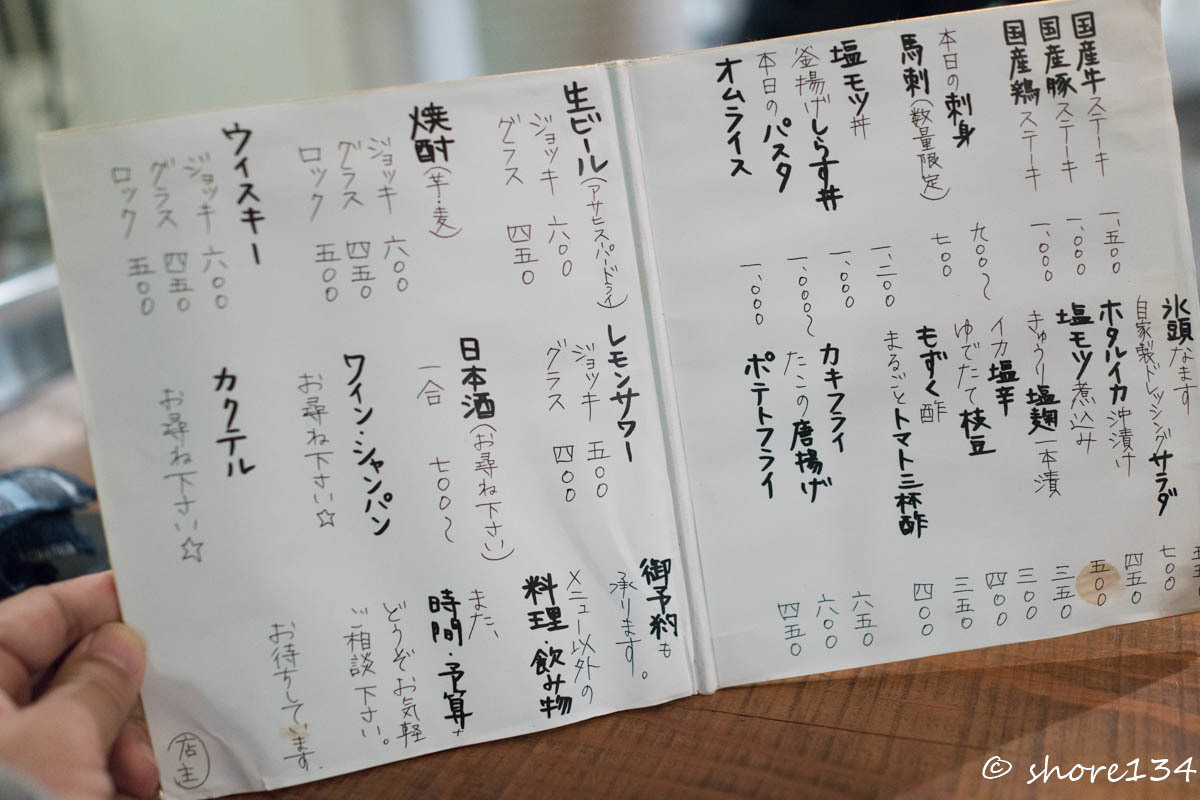 国産牛ステーキ 一、五〇〇
国産豚ステーキ 一、〇〇〇
国産鶏ステーキ 一、〇〇〇
本日の刺身 九〇〇〜
馬刺(数量限定) 七〇〇
塩モツ丼 一、二〇〇
釜揚げしらす丼 一、〇〇〇
本日のパスタ 一、〇〇〇〜
オムライス 一、〇〇〇
氷頭なます
自家製ドレッシングサラダ 七〇〇
ホタルイカ沖漬け 四五〇
塩モツ煮込み 五〇〇
きゅうり塩麹一本漬 三五〇
イカ塩辛 三〇〇
ゆでたて枝豆 四〇〇
もずく酢 三五〇
まるごとトマト三杯酢 四〇〇
カキフライ 六五〇
たこの唐揚げ 六〇〇
ポテトフライ 四五〇
生ビール(アサヒスーパードライ)
ジョッキ 六〇〇
グラス 四五〇
焼酎(芋・麦)
ジョッキ 六〇〇
グラス 四五〇
ロック 五〇〇
ウィスキー
ジョッキ 六〇〇
グラス 四五〇
ロック 五〇〇
レモンサワー
ジョッキ 五〇〇
グラス 四〇〇
日本酒(お尋ね下さい)
一合 七〇〇〜
ワイン・シャンパン
お尋ね下さい☆
カクテル
お尋ね下さい☆
御予約も
承ります。
メニュー以外の
料理 飲み物
また、
時間・予算等
どうぞお気軽
ご相談下さい。
お待ちしています.
店主
© shore134